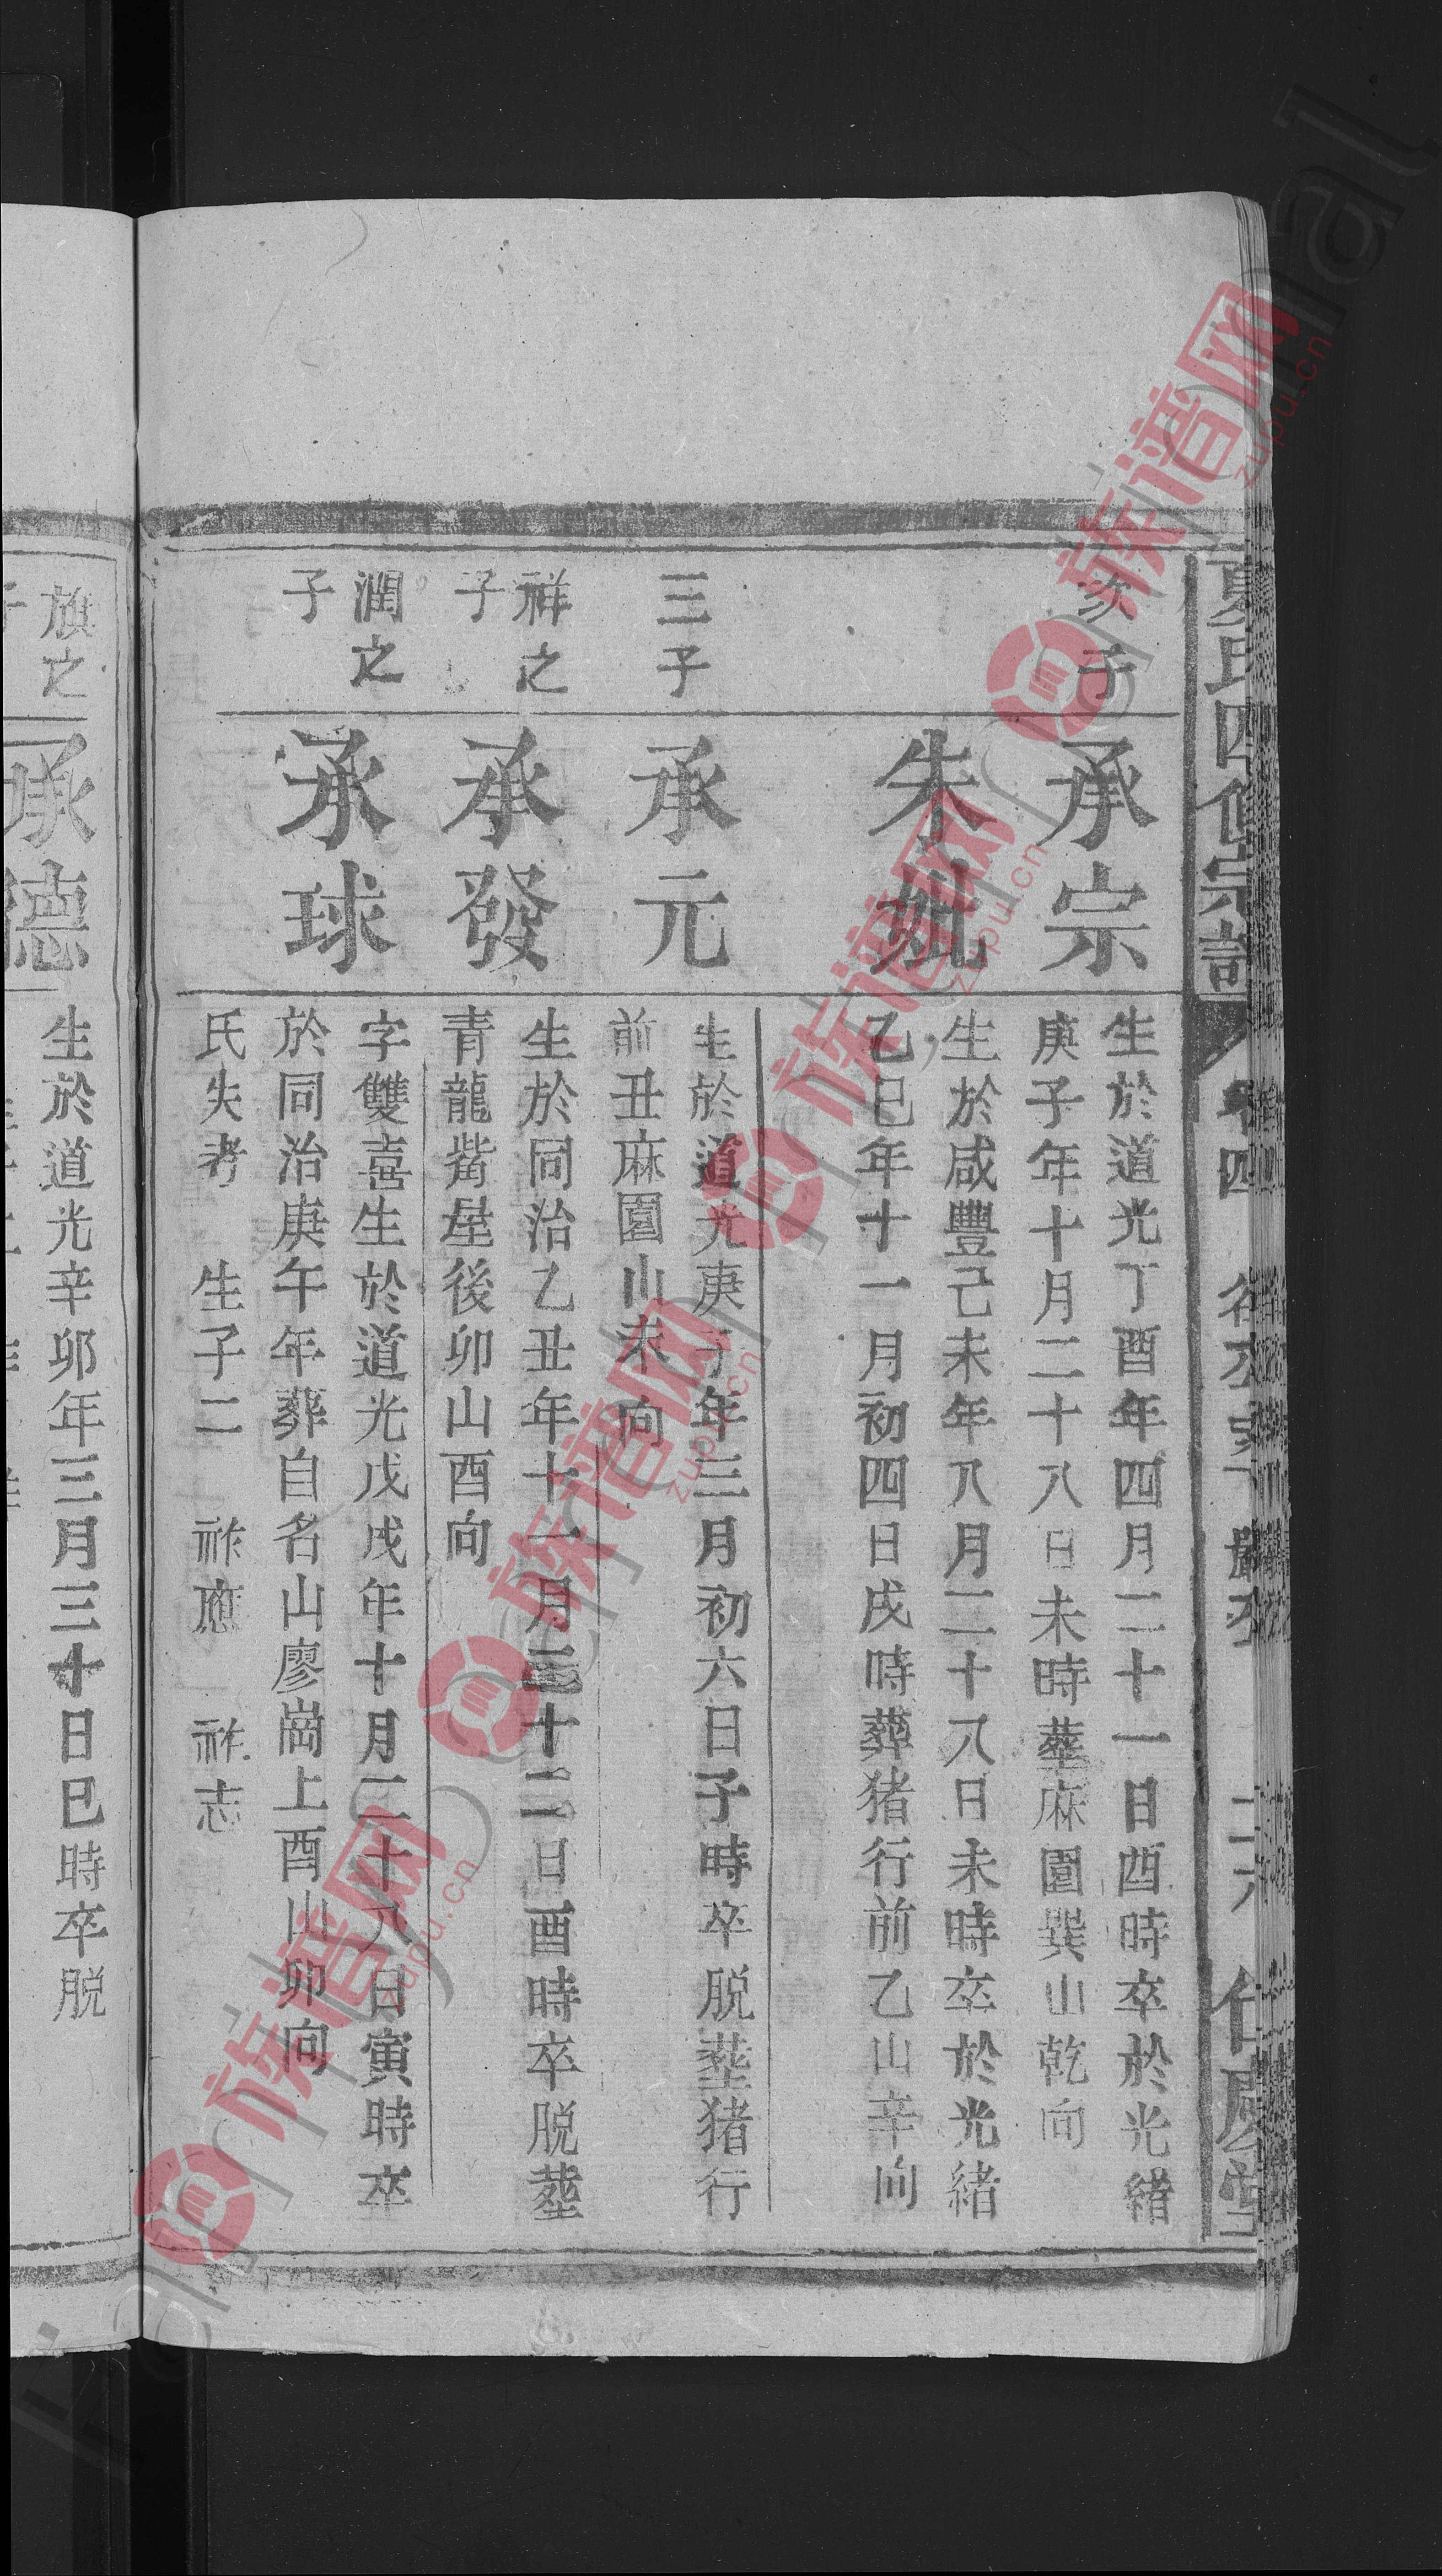 夏氏四修宗譜
次子
承宗
生於道光丁酉年四月二十一日酉時卒於光緒
庚子年十月二十八日未時塟麻園巽山乾向
朱妣
生於咸豐己未年八月二十八日未時卒於光緒
乙巳年十一月初四日戌時葬猪行前乙山辛向
三子
承元
生於道光庚子年三月初六日子時卒脱塟猪行
前丑麻園山未向
祥之
子
承發
生於同治乙丑年十一月二十二日酉時卒脱塟
青龍嘴屋後卯山酉向
潤之
子
承球
字雙喜生於道光戊戌年十月二十八日寅時卒
於同治庚午年葬自名山廖崗上酉山卯向
氏失考 生子二 祚應 祚志
旗之
子
承德
生於道光辛卯年三月三十日巳時卒脱
族谱网
zupu.cn
族谱网
zupu.cn
族谱网
zupu.cn
族谱网
zupu.cn